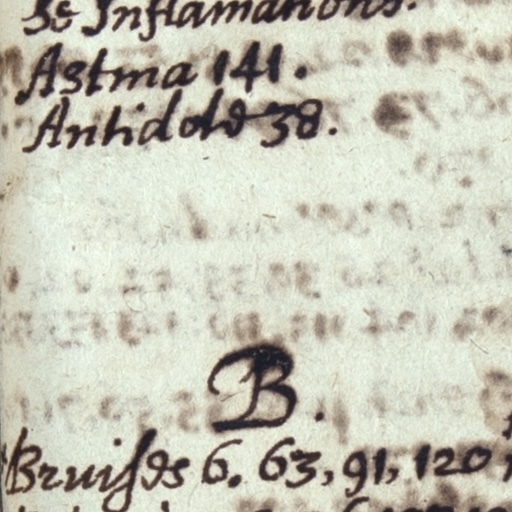 Se Inflamations.
Astma 141.
Antidote 38.
B.
Bruises 6. 63, 91, 120,